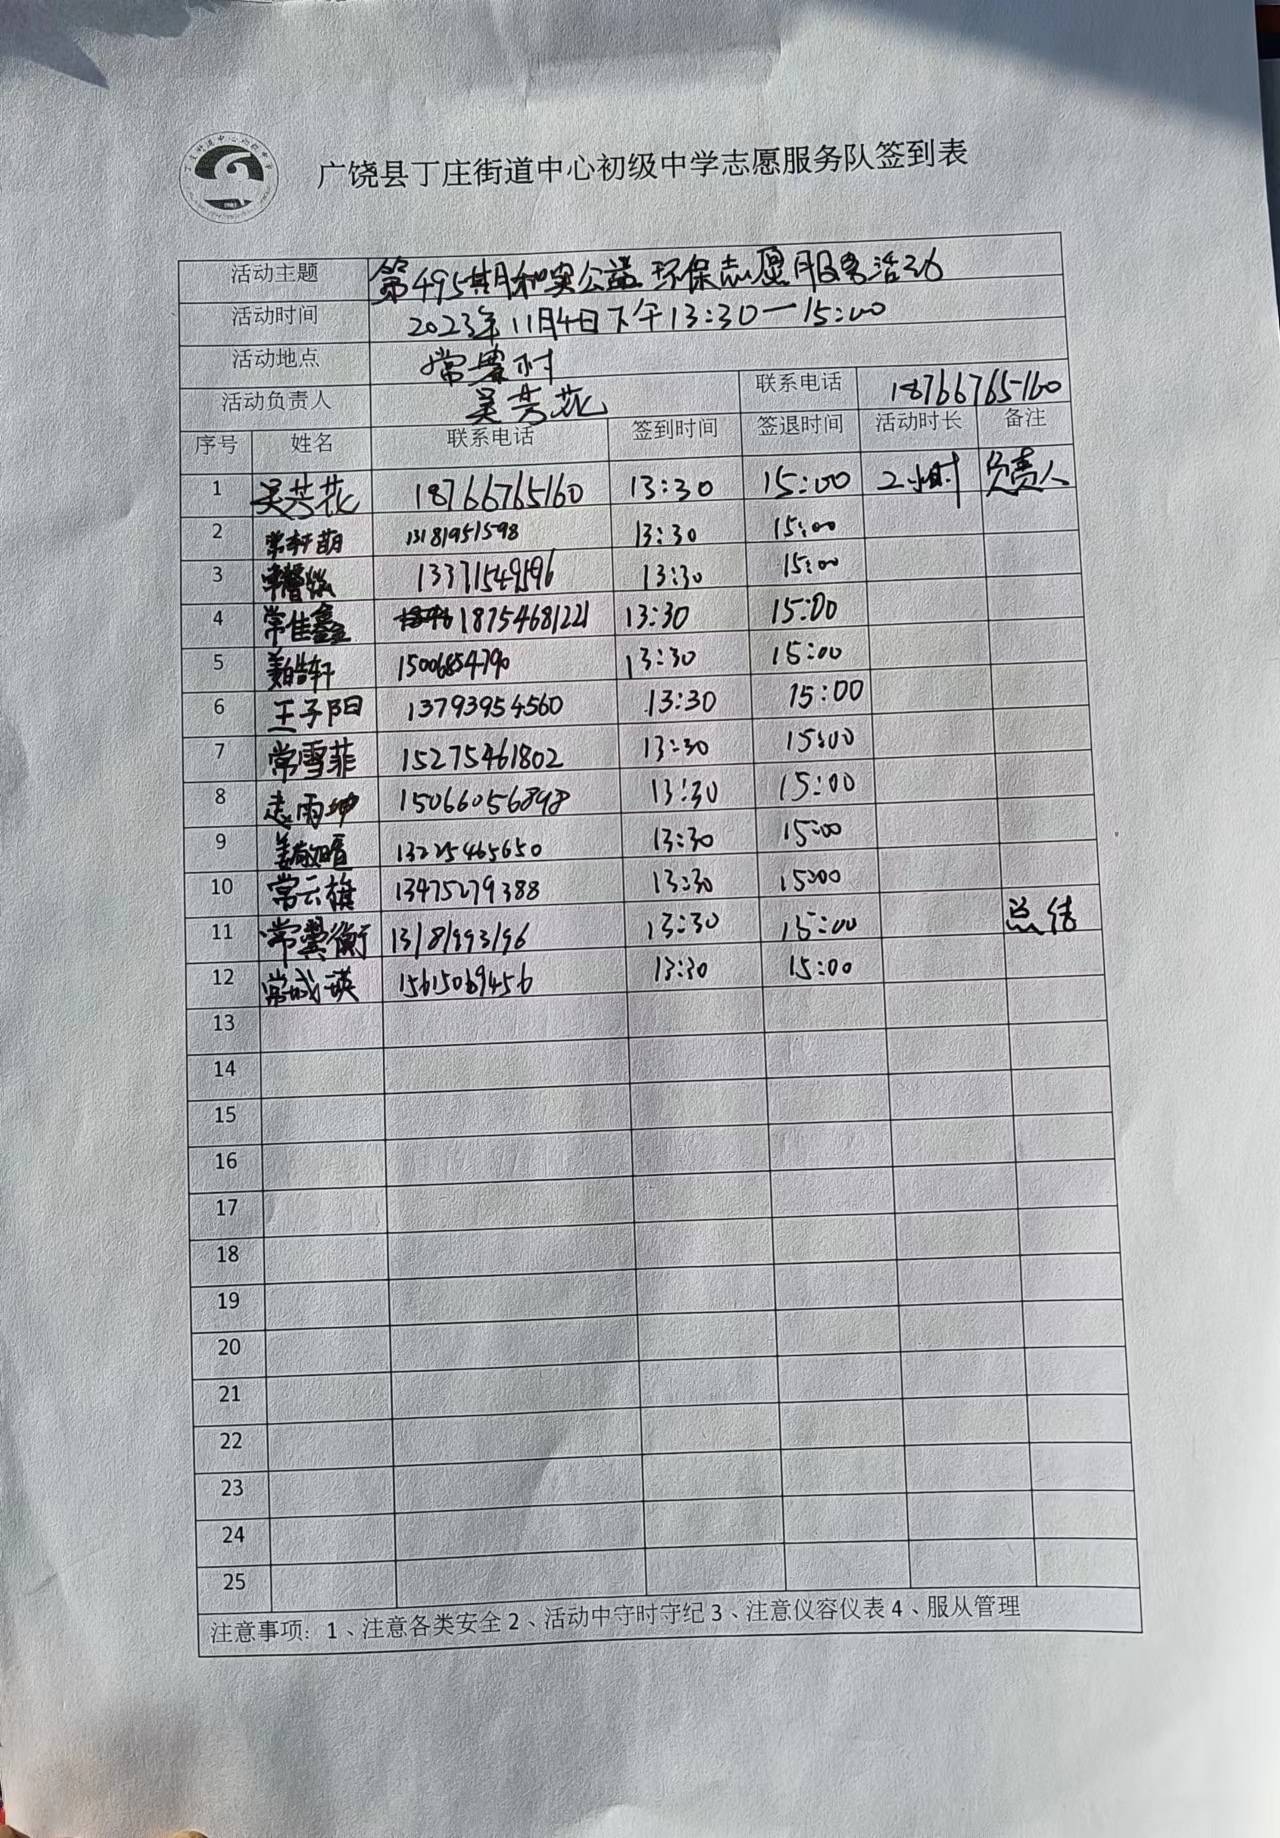 广饶县丁庄街道中心初级中学志愿服务队签到表
活动主题 第495期和实公益环保志愿服务活动
活动时间 2023年11月4日下午13:30一15:00
活动地点 常 村
活动负责人 吴芳花 联系电话 18766765160
序号 姓名 联系电话 签到时间 签退时间 活动时长 备注
1 吴芳花 18766765160 13:30 15:00 2小时 负责人
2 常轩萌 13181951598 13:30 15:00
3 13371549596 13:30 15:00
4 常佳鑫 18754681221 13:30 15:00
5 姜皓轩 15006854790 13:30 15:00
6 王子阳 13793954560 13:30 15:00
7 常雪菲 15275461802 13:30 15:00
8 赵雨坤 15066056898 13:30 15:00
9 13225465650 13:30 15:00
10 常云旗 13475279388 13:30 15:00
11 常 衡 13181993196 13:30 15:00 总结
12 常成瑛 15615069456 13:30 15:00
13
14
15
16
17
18
19
20
21
22
23
24
25
注意事项：1、注意各类安全 2、活动中守时守纪 3、注意仪容仪表 4、服从管理